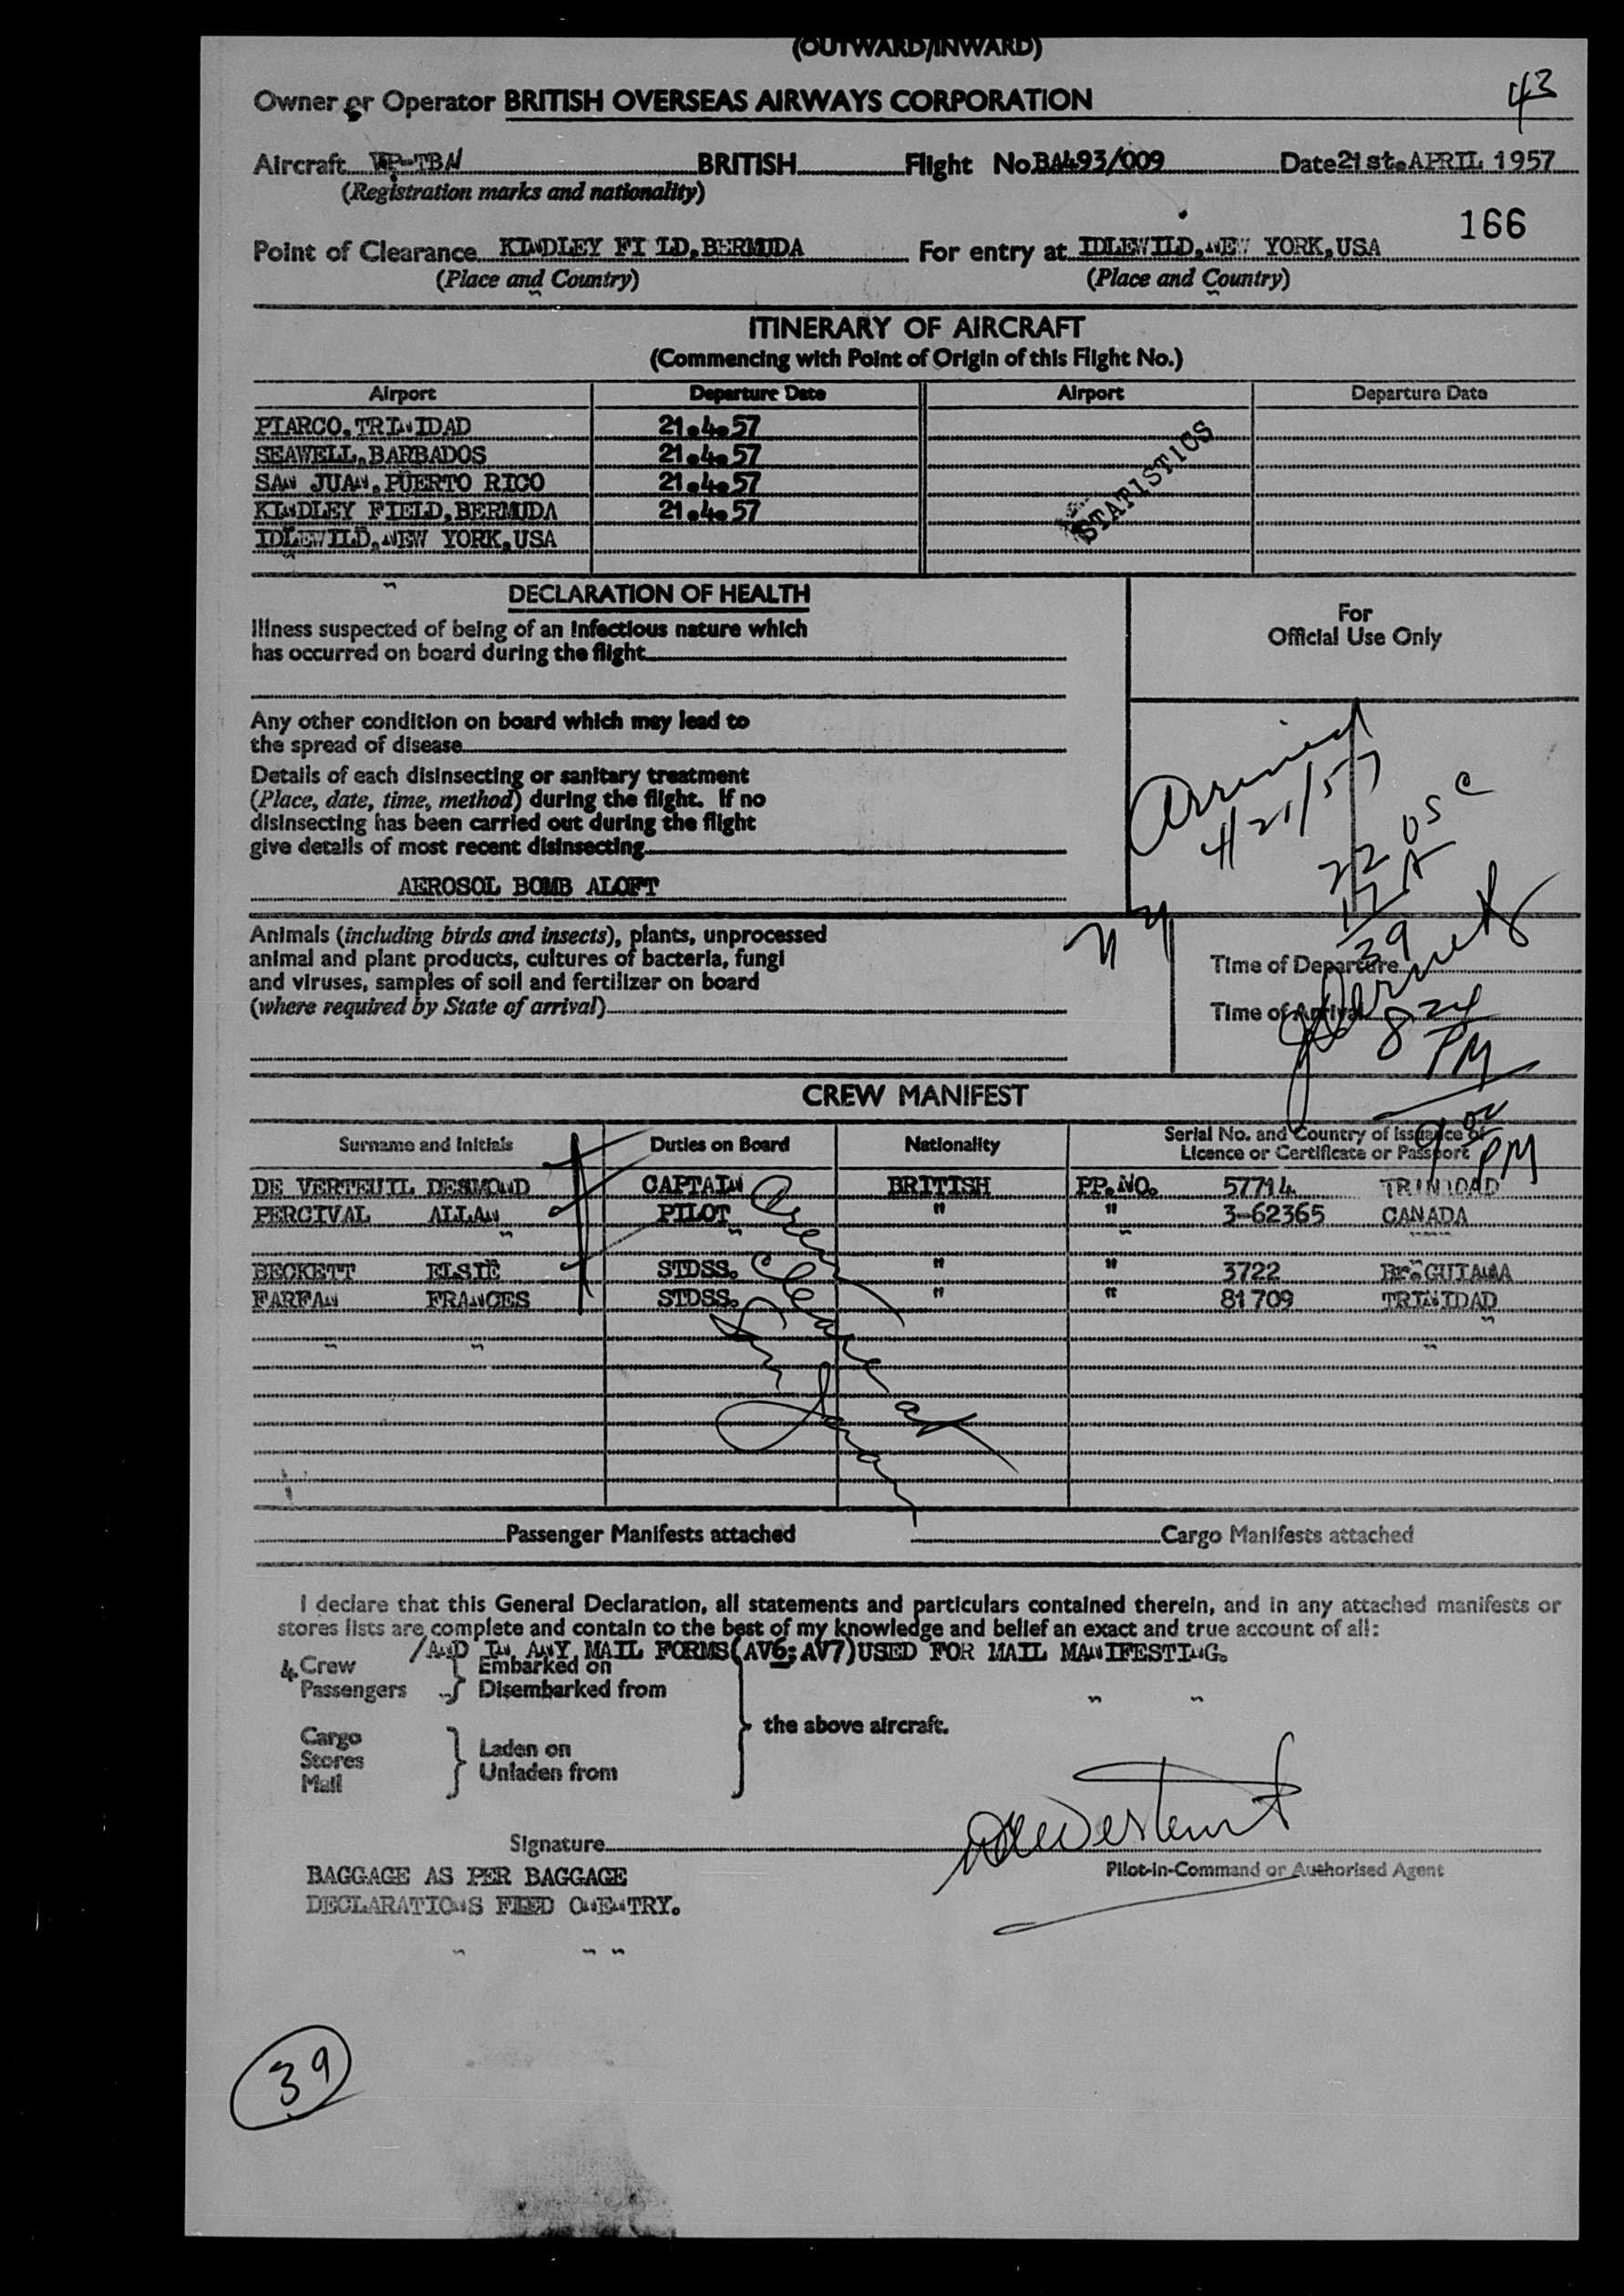 (OUTWARD/INWARD)
43
Owner or Operator BRITISH OVERSEAS AIRWAYS CORPORATION
Aircraft VP-TBN BRITISH Flight No. BA493/009 Date 21st. APRIL 1957
(Registration marks and nationality)
166
Point of Clearance KINDLEY FI LD, BERMUDA For entry at IDLEWILD, NEW YORK, USA
(Place and Country) (Place and Country)
ITINERARY OF AIRCRAFT
(Commencing with Point of Origin of this Flight No.)
Airport Departure Date Airport Departure Date
PIARCO, TRINIDAD 21.4.57
SEAWELL, BARBADOS 21.4.57
SAN JUAN, PUERTO RICO 21.4.57
KINDLEY FIELD, BERMUDA 21.4.57
IDLEWILD, NEW YORK, USA
STATISTICS
DECLARATION OF HEALTH
Illness suspected of being of an infectious nature which
has occurred on board during the flight
For
Official Use Only
Any other condition on board which may lead to
the spread of disease
Details of each disinsecting or sanitary treatment
(Place, date, time, method) during the flight. If no
disinsecting has been carried out during the flight
give details of most recent disinsecting
AEROSOL BOMB ALOFT
Arrived
4/21/57
22 USC
17 A
39
NY
Animals (including birds and insects), plants, unprocessed
animal and plant products, cultures of bacteria, fungi
and viruses, samples of soil and fertilizer on board
(where required by State of arrival)
Time of Departure
Time of Arrival 8 24 PM
9 00 PM
CREW MANIFEST
Surname and Initials Duties on Board Nationality Serial No. and Country of Issuance of
Licence or Certificate or Passport
DE VERTEUIL DESMOND CAPTAIN BRITISH PP.NO. 57714 TRINIDAD
PERCIVAL ALLAN PILOT " " 3-62365 CANADA
BECKETT ELSIE STDSS. " " 3722 Br.GUIANA
FARFAN FRANCES STDSS. " " 81709 TRINIDAD
Passenger Manifests attached Cargo Manifests attached
I declare that this General Declaration, all statements and particulars contained therein, and in any attached manifests or
stores lists are complete and contain to the best of my knowledge and belief an exact and true account of all:
/AND IN ANY MAIL FORMS(AV6; AV7)USED FOR MAIL MANIFESTING.
4 Crew } Embarked on
Passengers } Disembarked from
the above aircraft.
Cargo
Stores } Laden on
Mail } Unladen from
Signature
Pilot-in-Command or Authorised Agent
BAGGAGE AS PER BAGGAGE
DECLARATIONS FILED ONENTRY.
39